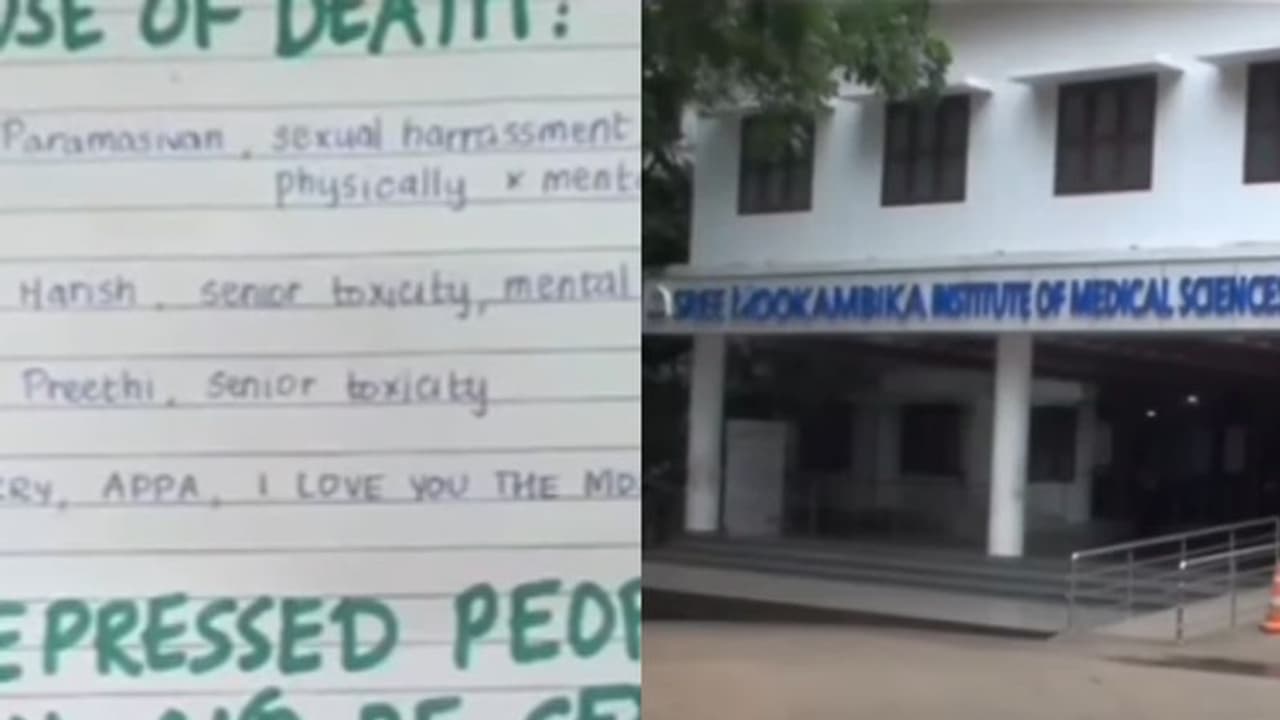 USE OF DEATH:
Paramasivan, sexual harrassment
physically x menta
Harish, senior toxicity, mental
Preethi, senior toxicity
RRY, APPA, I LOVE YOU THE MO
EPRESSED PEOP
SREE MOOKAMBIKA INSTITUTE OF MEDICAL SCIENCES